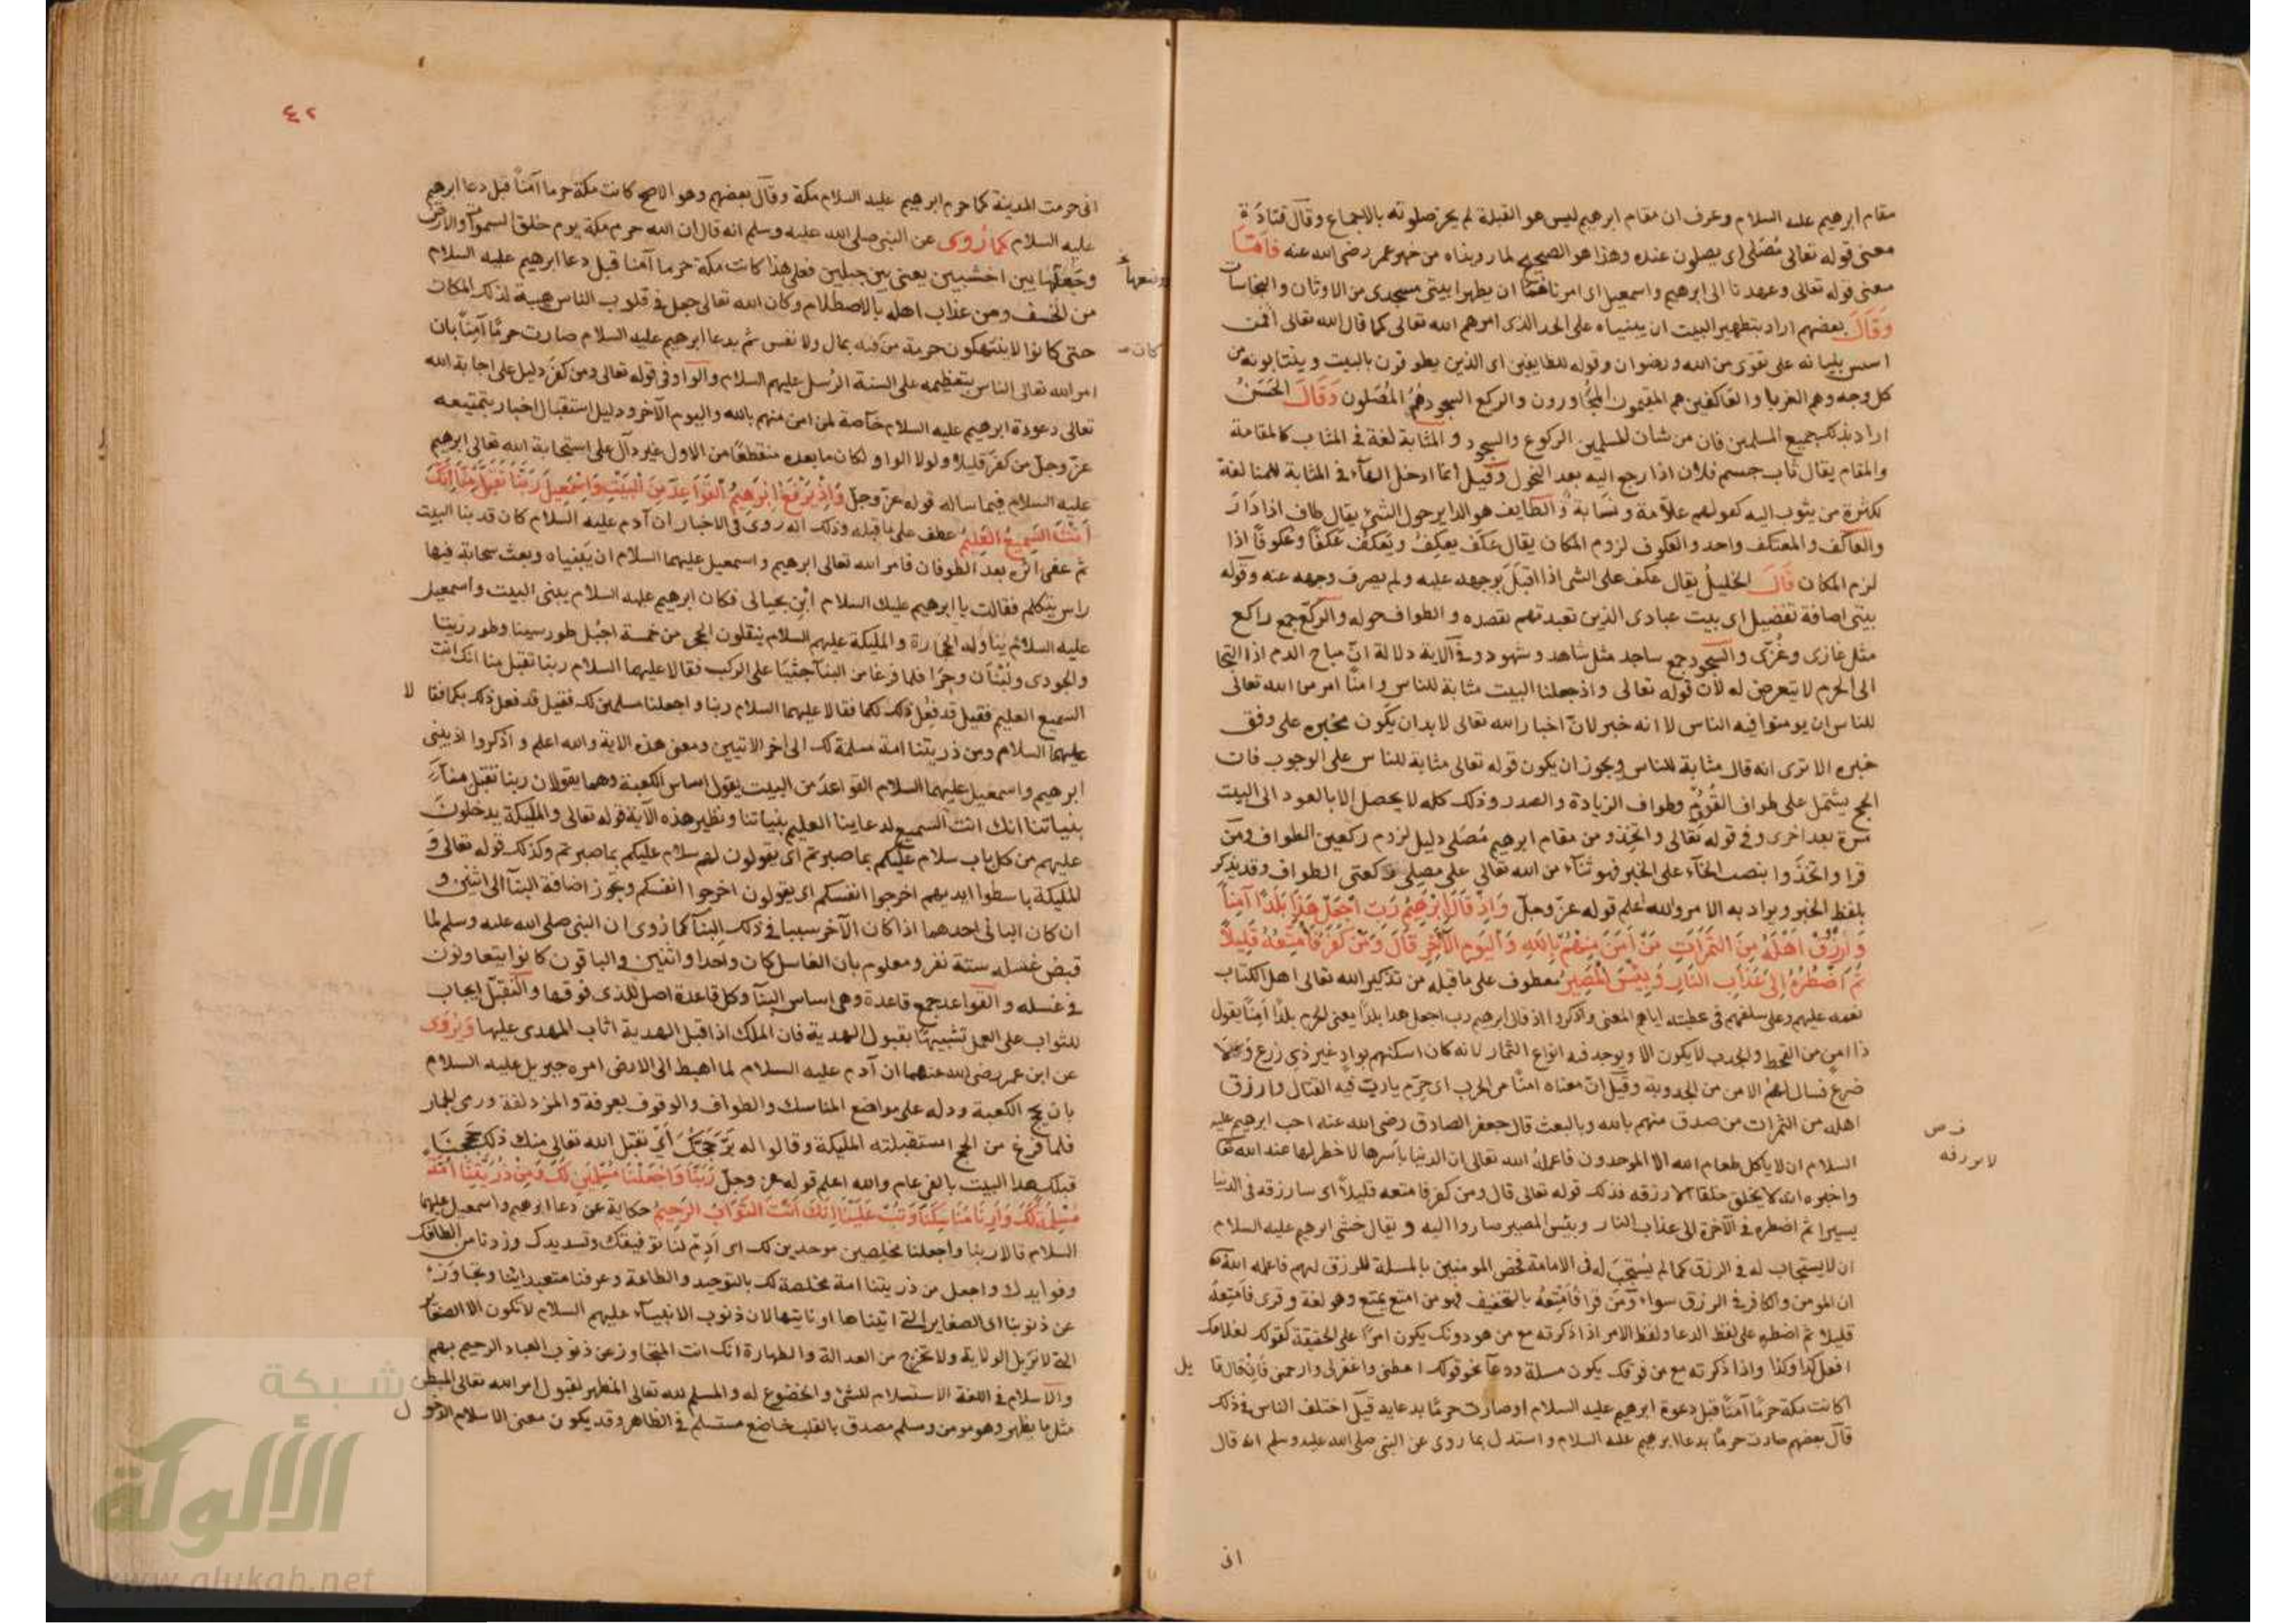 مقام ابرهيم عليه السلام وعرف ان مقام ابرهيم ليس هو القبلة لم يجز صلوته بالاجماع وقال قتادة
معنى قوله تعالى مُصَلى اى يصلون عنده وهذا هو الصحيح لما رويناه من خبر عمر رضى الله عنه فامّا
معنى قوله تعالى وعهدنا الى ابرهيم واسمعيل اى امرناهما ان يطهرا بيتى مسجدى من الاوثان والنجاسات
وقال بعضهم اراد بتطهير البيت ان يبنياه على الحد الذى امرهم الله تعالى كما قال الله تعالى افمن
اسس بنيانه على تقوى من الله ورضوان وقوله للطايفين اى الذين يطوفون بالبيت وينتابونه من
كل وجه وهم الغربا والعاكفين هم المقيمون المجاورون والركع السجود هم المُصَلون وقال الحَسَنُ
اراد بذلك جميع المسلمين فان من شان المسلمين الركوع والسجود والمثابة لغة فى المثاب كالمقامة
والمقام يقال ثاب جسم فلان اذا رجع اليه بعد النحول وقيل انما ادخل الهآء فى المثابة للمبالغة
لكثرة من يثوب اليه كقولهم علاّمة ونسّابة والطايف هو الداير حول الشئ يقال طاف اذا دَارَ
والعاكف والمعتكف واحد والعكوف لزوم المكان يقال عَكَف يعكِفُ ويَعكُف عَكفًا وعكوفًا اذا
لزم المكان قال الخليلُ يقال عكف على الشى اذا اقبَلَ بوجهه عليه ولم يصرف وجهه عنه وقوله
بيتى اضافة تفضيل اى بيت عبادى الذين تعبدتهم بقصده والطواف حوله والركع جمع راكع
مثل غازى وغُزّى والسجود جمع ساجد مثل شاهد وشهود وفى الآية دلالة انّ مباح الدم اذا التجا
الى الحرم لا يتعرض له لأن قوله تعالى واذ جعلنا البيت مثابة للناس وامنًا امر من الله تعالى
للناس ان يومنوا فيه الناس لا انه خبر لانّ اخبار الله تعالى لابد ان يكون مخبره على وفق
خبره الا ترى انه قال مثابة للناس ويجوز ان يكون قوله تعالى مثابة للناس على الوجوب فان
الحج يشتمل على طواف القُدُوم وطواف الزيادة والصدر وذلك كله لا يحصل الا بالعود الى البيت
مرة بعد اخرى وفى قوله تعالى واتخذو من مقام ابرهيم مُصَلى دليل لزوم ركعتين الطواف ومن
قرا واتخَذوا بنصب الخآء على الخبر فهو ثنآء من الله تعالى على مصلى ركعتى الطواف وقد يذكر
بلفظ الخبر ويراد به الامر والله اعلم قوله عزّ وجلّ وَاِذ قَالَ اِبْرٰهِيمُ رَبِّ اجْعَلْ هَذَا بَلَدًا آمِنًا
وَارْزُقْ اَهْلَهُ مِنَ الثمَرَاتِ مَنْ اٰمَنَ مِنهُمْ بِاللهِ وَاليَومِ الآخِرِ قَالَ وَمَنْ كَفَرَ فَاُمَتِّعُهُ قَلِيلاً
ثُمَّ اَضْطَرُّهُ اِلَى عَذَابِ النَّارِ وَبِئْسَ الْمَصِيرُ معطوف على ما قبله من تذكير الله تعالى اهل الكتاب
نعمه عليهم وعلى سلفهم فى عطيته اياهم المعنى واذكروا اذ قال ابرهيم رب اجعل هذا بلدًا يعنى الحرم بلدًا آمنًا يقول
ذا امنٍ من القحط والجدب لا يكون الا ويوجد فيه انواع الثمار لانه كان اسكنهم بوادٍ غير ذى زرع ولا
ضرع فسال لهم الامن من الجدوبة وقيل انّ معناه امنًا من الحرب اى حَرّم يا رب فيه القتال وارزق
اهله من الثمرات من صدق منهم بالله وبالبعث قال جعفر الصادق رضى الله عنه احب ابرهيم عليه
السلام ان لا ياكل طعام الله الا الموحدون فاعلمهُ الله تعالى ان الدنيا باَسرها لا خطر لها عند الله تعا
واخبره انه لا يخلق خلقا الا رزقه فذلك قوله تعالى قال ومن كفر فامتعه قليلاً اى سارزقه فى الدنيا
يسيرا ثم اضطره فى الآخرة الى عذاب النار وبئس المصير صاروا اليه ويقال خشى ابرهيم عليه السلام
ان لا يستجاب له فى الرزق كما لم يُستَجَب له فى الامامة فخص المومنين بالمسلة للرزق لهم فاعلمه الله
ان المومن والكافر فى الرزق سواء ومَن قرا فَاُمْتِعُهُ بالتخفيف فهو من امتع يمتع وهو لغة وقرى فَامْتِعْهُ
قليلا ثم اضطره على لفظ الدعا ولفظ الامر اذا ذكرته مع من هو دونك يكون امرًا على الحقيقة كقولك لغلامك
افعل كذا وكذا واذا ذكرته مع من فوقك يكون مسلة ودعآ نحو قولك اعطنى واغفر لى وارحمنى فان قال قا يل
اكانت مكة حرمًا آمنًا قبل دعوة ابرهيم عليه السلام او صارت حرمًا بدعايه قيل اختلف الناس فى ذلك
قال بعضهم صارت حرمًا بدعا ابرهيم عليه السلام واستدل بما روى عن النبى صلى الله عليه وسلم انه قال
لا يرزقه
انى
٤٢
انى حرمت المدينة كما حرم ابرهيم عليه السلام مكة وقال بعضهم وهو الاصح كانت مكة حرما آمنًا قبل دعا ابرهيم
عليه السلام كما رُوى عن النبى صلى الله عليه وسلم انه قال ان الله حرم مكة يوم خلق السموات والارض
وجَعَلها بين اخشبين يعنى بين جبلين فعلى هذا كانت مكة حرما آمنا قبل دعا ابرهيم عليه السلام
من الخسف ومن عذاب اهله بالاصطلام وكان الله تعالى جعل فى قلوب الناس هيبة لذلك المكان
حتى كانوا لا ينتهكون حرمة من فيه بمال ولا نفس ثم بدعا ابرهيم عليه السلام صارت حرمًا آمنًا بان
كان
امر الله تعالى الناس بتعظيمه على السنة الرُسل عليهم السلام والواو فى قوله تعالى ومن كفر دليل على اجابة الله
تعالى دعوة ابرهيم عليه السلام خاصة لمن امن منهم بالله واليوم الآخر ودليل استقبال اخبار بتمتيعه
عزّ وجلّ من كفرَ قليلا ولولا الواو لكان ما بعده منقطعًا من الاول غير دالّ على استجابة الله تعالى ابرهيم
عليه السلام فيما ساله قوله عزّ وجلّ وَاِذْ يَرْفَعُ اِبْرٰهِيمُ القَوَاعِدَ مِنَ الْبَيْتِ وَاِسْمٰعِيلُ رَبَّنَا تَقَبَّلْ مِنَّا اِنَّكَ
اَنْتَ السَمِيعُ العَلِيمُ عطف على ما قبله وذلك انه روى فى الاخبار ان آدم عليه السلام كان قد بنا البيت
ثم عفى اثره بعد الطوفان فامر الله تعالى ابرهيم واسمعيل عليهما السلام ان يَبنياه وبعث سحابة فيها
راس يتكلم فقالت يا ابرهيم عليك السلام ابْنِ بحيالى فكان ابرهيم عليه السلام يبنى البيت واسمعيل
عليه السلام يناوله الحجارة والمليكة عليهم السلام ينقلون الحجر من خمسة اجبُل طور سينا وطور زيتا
والجودى ولبنان وحِرَا فلما فرغا من البنآ جثيَا على الركب فقالا عليهما السلام ربنا تقبل منا انك انت
السميع العليم فقيل قد فعل ذلك لكما فقالا عليهما السلام ربنا واجعلنا مسلمين لك فقيل قد فعل ذلك بكما فقا لا
عليهما السلام ومن ذريتنا امة مسلمة لك الى اخر الايتين ومعنى هذه الاية والله اعلم واذكروا اذ يبنى
ابرهيم واسمعيل عليهما السلام القواعد من البيت يقول اساس الكعبة وهما يقولان ربنا تقبل منا
بنياتنا انك انت السميع لدعاينا العليم بنياتنا ونظير هذه الآية قوله تعالى والمليكة يدخلون
عليهم من كل باب سلام عليكم بما صبرتم اى يقولون لهم سلام عليكم بما صبرتم وكذلك قوله تعالى وَ
المليكة باسطوا ايديهم اخرجوا انفسكم اى يقولون اخرجوا انفسكم ويجوز اضافة البنآ الى اثنين و
ان كان البانى احدهما اذا كان الآخر سببا فى ذلك البنآ كما رُوى ان النبى صلى الله عليه وسلم لما
قبض غسله ستة نفر ومعلوم بان الغاسل كان واحدا واثنين والباقون كانوا يتعاونون
فى غسله والقواعد جمع قاعدة وهى اساس البنآ وكل قاعدة اصل للذى فوقها والتقبّل ايجاب
للثواب على العمل تشبيهًا بقبول الهدية فان الملك اذا قبل الهدية اثاب المهدى عليها ويُروى
عن ابن عمر رضى الله عنهما ان آدم عليه السلام لما اهبط الى الارض امره جبريل عليه السلام
بان يحج الكعبة ودله على مواضع المناسك والطواف والوقوف بعرفة والمزدلفة ورمى الجمار
فلما فرغ من الحج استقبلته المليكة وقالوا له بَرَّ حَجُّكَ اَىْ تقبل الله تعالى منك ذلك حَجَجْنَا
قبلك هذا البيت بالفى عام والله اعلم قوله عز وجلّ رَبَّنَا وَاجْعَلْنَا مُسْلِمَيْنِ لَكَ وَمِنْ ذُرِّيَّتِنَا اُمَّةً
مُسْلِمَةً لَكَ وَاَرِنَا مَنَاسِكَنَا وَتُبْ عَلَيْنَا اِنَّكَ اَنْتَ التَّوَّابُ الرَّحِيمُ حكاية عن دعا ابرهيم واسمعيل عليهما
السلام قالا ربنا واجعلنا مخلصين موحدين لك اى اَدِمْ لنا توفيقك وتسديدك وزدنا من الطافك
وفوايدك واجعل من ذريتنا امة مخلصة لك بالتوحيد والطاعة وعرفنا متعبداتنا وتجاوز
عن ذنوبنا اى الصغاير التى اتيناها او ناتيها لان ذنوب الانبيآء عليهم السلام لا تكون الا الصغآير
التى لا تزيل الولاية ولا تخرج من العدالة والطهارة انك انت المتجاوز عن ذنوب العباد الرحيم بهم
والاسلام فى اللغة الاستسلام للشئ والخضوع له والمسلم لله تعالى المظهر لقبول امر الله تعالى المبطن
مثل ما يظهر وهو مومن ومسلم مصدق بالقلب خاضع مستسلم فى الظاهر وقد يكون معنى الاسلام الدخو ل
شبكة
الألوكة
www.alukah.net